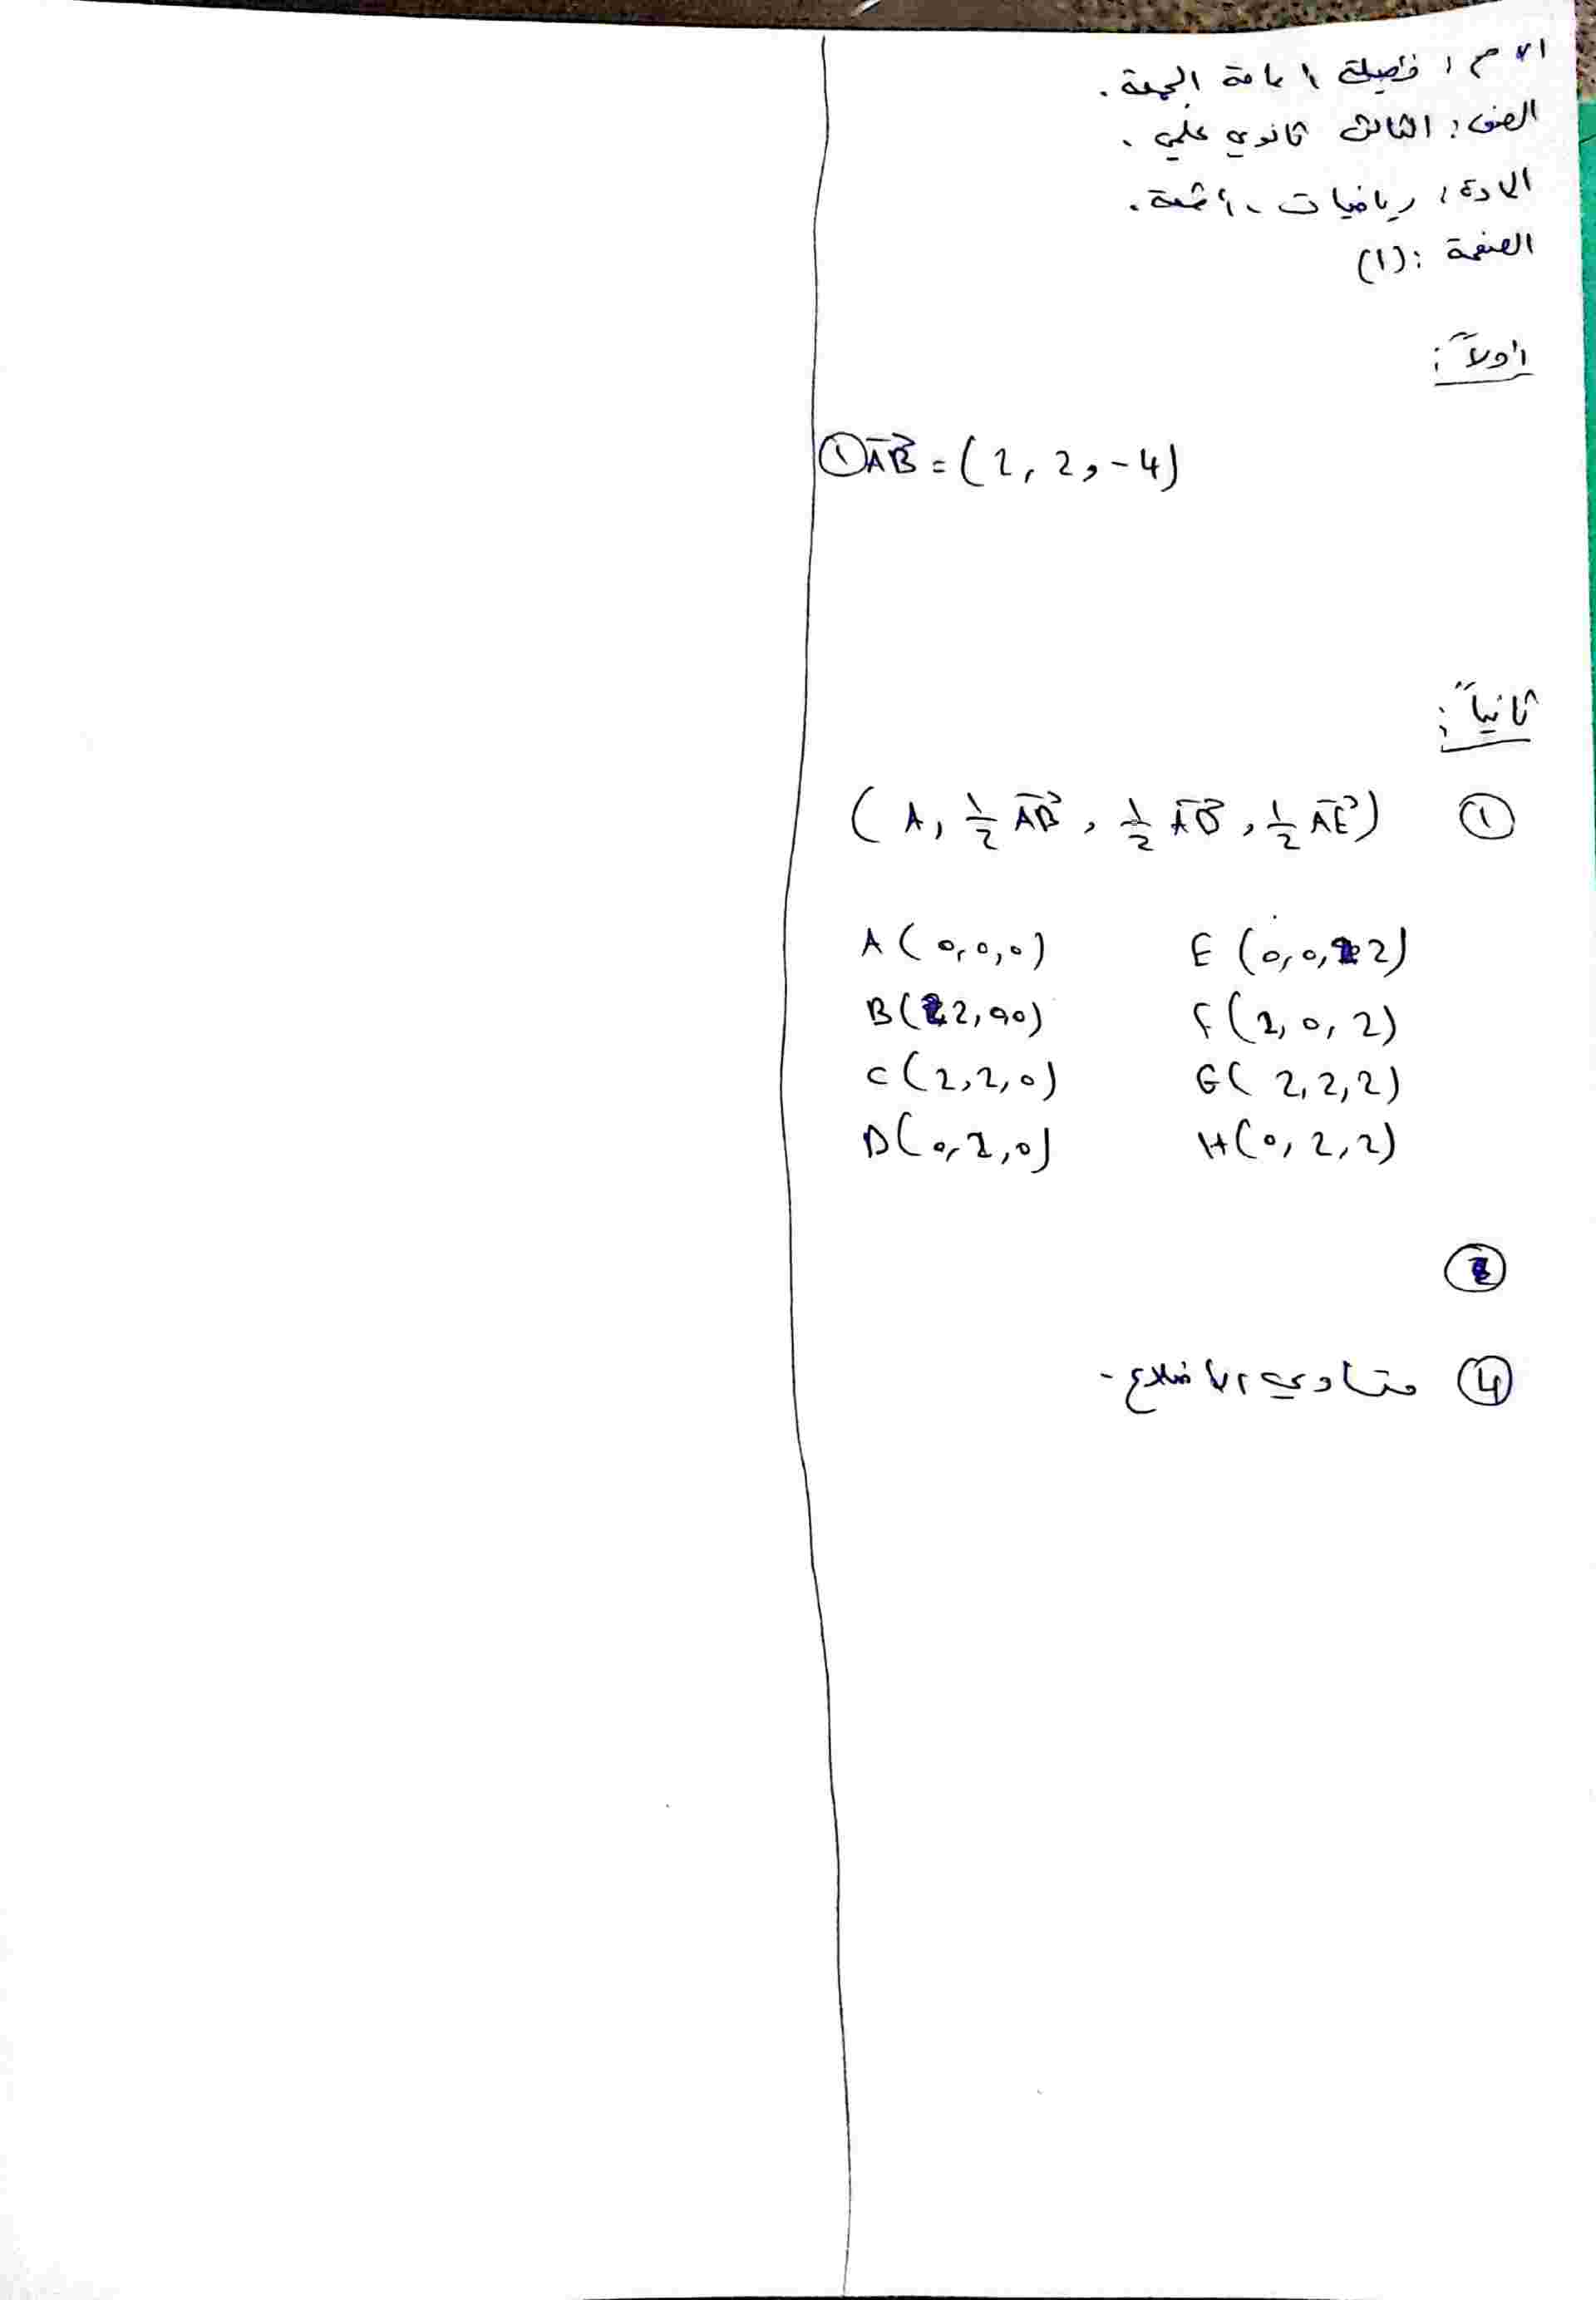 الاسم : فضيلة أسامة الجمعة .
الصف : الثالث ثانوي علمي .
المادة : رياضيات - أشعة .
الصفحة : (1)
أولاً :
① AB = (2, 2, -4)
ثانياً :
① (A, 1/2 AB, 1/2 AD, 1/2 AE)
A (0,0,0) E (0,0,2)
B (2,0,0) F (2,0,2)
C (2,2,0) G (2,2,2)
D (0,2,0) H (0,2,2)
④ متساوي الأضلاع -